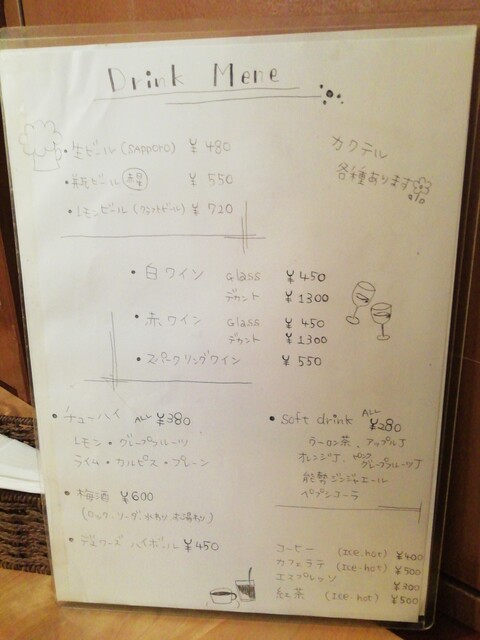 Drink Mene
・生ビール(SAPPORO) ¥480
・瓶ビール ¥550
・レモンビール ¥720
カクテル
各種あります
・白ワイン Glass ¥450
デカント ¥1300
・赤ワイン Glass ¥450
デカント ¥1300
・スパークリングワイン ¥550
・チューハイ ALL ¥380
レモン・グレープフルーツ
ライム・カルピス・プレーン
・梅酒 ¥600
(ロック、ソーダ、水わり、お湯わり)
・デュワーズ ハイボール ¥450
・Soft drink ALL ¥280
ウーロン茶、アップルJ
オレンジJ、ピンクグレープフルーツJ
能勢ジンジャエール
ペプシコーラ
コーヒー (Ice.hot) ¥400
カフェラテ (Ice.hot) ¥500
エスプレッソ ¥300
紅茶 (Ice.hot) ¥500